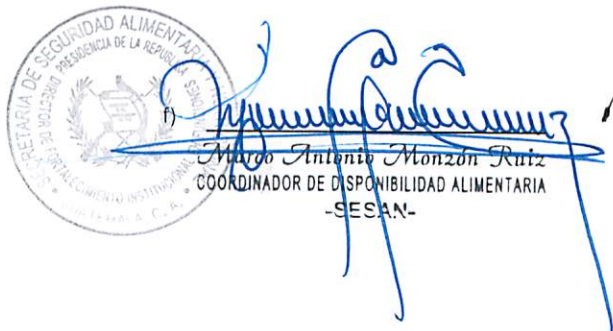 SECRETARIA DE SEGURIDAD ALIMENTARIA
PRESIDENCIA DE LA REPUBLICA
FORTALECIMIENTO INSTITUCIONAL
GUATEMALA, C. A.
f)
Marco Antonio Monzón Ruiz
COORDINADOR DE DISPONIBILIDAD ALIMENTARIA
-SESAN-